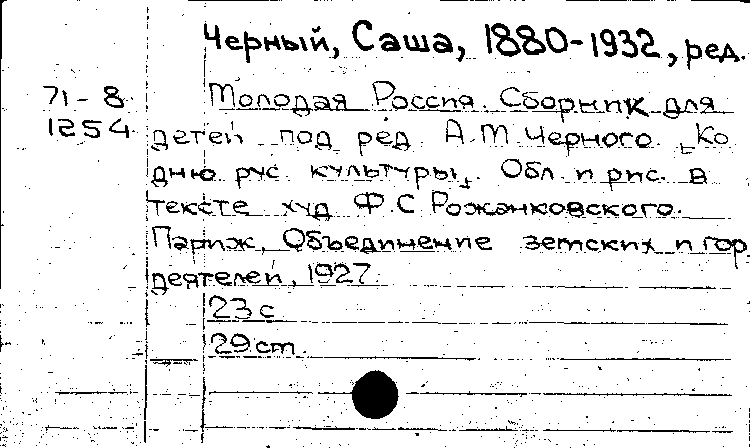 Черный, Саша, 1880-1932, ред.
71-8 Молодая Россия. Сборник для
1254 детей под ред. А.М.Черного. [Ко
дню рус. культуры]. Обл. и рис. в
тексте худ Ф.С.Рожанковского.
Париж, Объединение земских и гор.
деятелей, 1927.
23 с
29 cm.